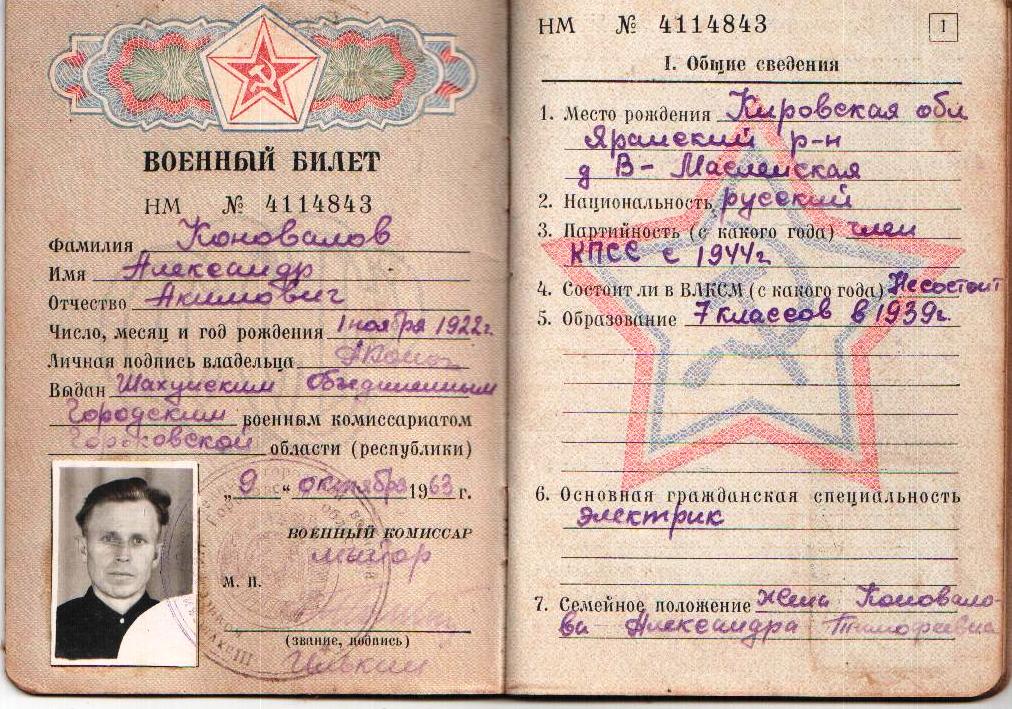 ВОЕННЫЙ БИЛЕТ
НМ № 4114843
Фамилия Коновалов
Имя Александр
Отчество Акимович
Число, месяц и год рождения 1 ноября 1922г.
Личная подпись владельца
Выдан Шахунским Объединенным
Городским военным комиссариатом
Горьковской области (республики)
„9“ октября 1963 г.
ВОЕННЫЙ КОМИССАР
М. П.
(звание, подпись)
НМ № 4114843
1
I. Общие сведения
1. Место рождения Кировская обл
Яранский р-н
д В-
2. Национальность русский
3. Партийность (с какого года) член
КПСС с 1944г
4. Состоит ли в ВЛКСМ (с какого года) Не состоит
5. Образование 7 классов в 1939г.
6. Основная гражданская специальность
электрик
7. Семейное положение жена Коновало-
ва Александра Тимофеевна